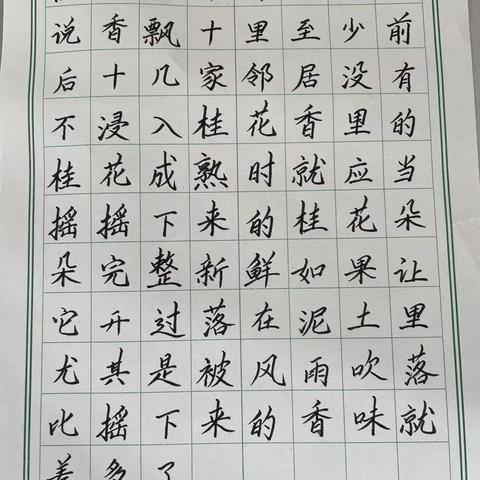 说香飘十里至少前
后十几家邻居没有
不浸入桂花香里的
桂花成熟时就应当
摇摇下来的桂花朵
朵完整新鲜如果让
它开过落在泥土里
尤其是被风雨吹落
比摇下来的香味就
差多了